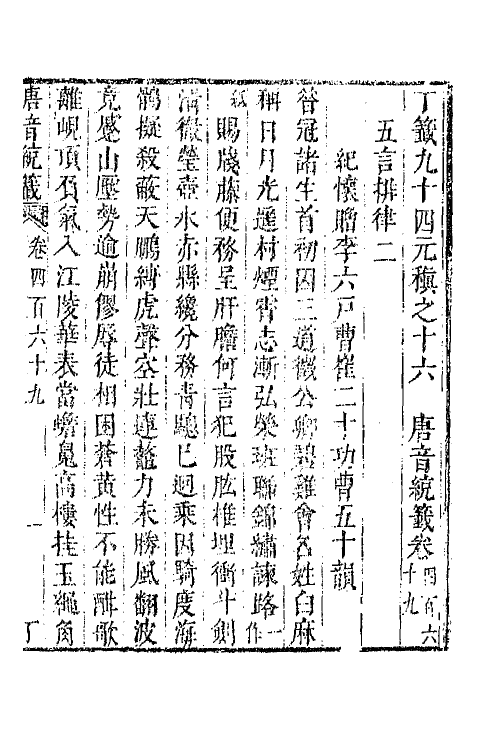 丁籤九十四元稹之十六　唐音統籤卷四百六十九
五言排律二
紀懷贈李六戶曹崔二十功曹五十韻
昔冠諸生首初因三道徵公卿碧雞會名姓白麻
稱日月光遙村煙霄志漸弘榮班聯錦繡諫路一作
紙賜牋藤便務呈肝膽何言犯股肱椎埋衝斗劍
消徹瑩壺水赤縣纔分務青驄已迴乘因騎度海
鶻擬殺蔽天鵬縛虎聲空壯連鼇力未勝風翻波
竟蹙山壓勢逾崩僇辱徒相困蒼黃性不能酣歌
離峴頂負氣入江陵華表當蟾魄高樓挂玉繩角
唐音統籤 卷四百六十九 一 丁